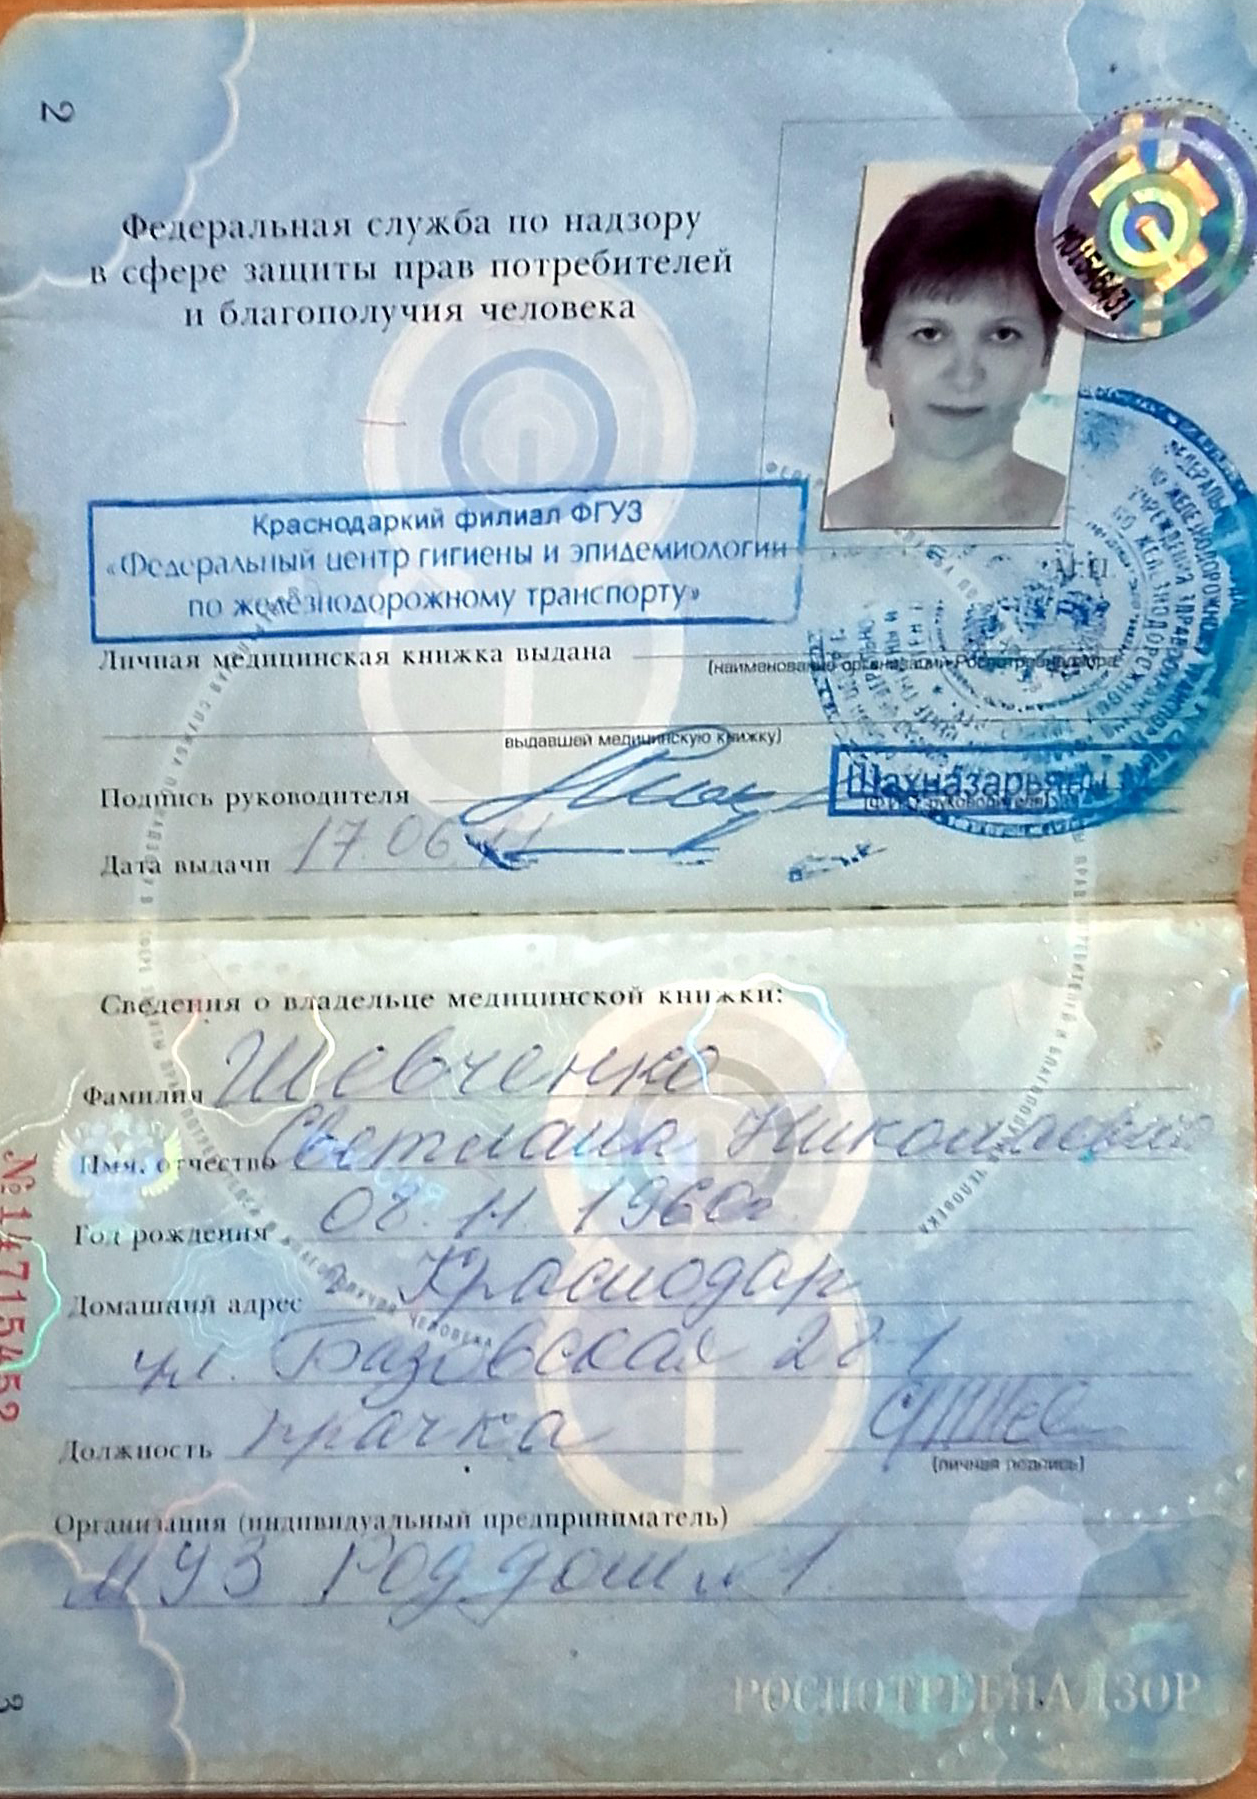 2
Федеральная служба по надзору
в сфере защиты прав потребителей
и благополучия человека
Краснодаркий филиал ФГУЗ
«Федеральный центр гигиены и эпидемиологии
по железнодорожному транспорту»
Личная медицинская книжка выдана
(наименование организации Роспотребнадзора,
выдавшей медицинскую книжку)
Подпись руководителя
Шахназарьянц
(Ф.И.О. руководителя)
Дата выдачи 17.06.11
Сведения о владельце медицинской книжки:
Фамилия Шевченко
Имя, отчество Светлана Николаевна
Год рождения 08.11.1960г
Домашний адрес г. Краснодар
ул. Базовская 28-1
Должность прачка
(личная подпись)
Организация (индивидуальный предприниматель)
МУЗ Род дом №1
№1471545 2
РОСПОТРЕБНАДЗОР
3